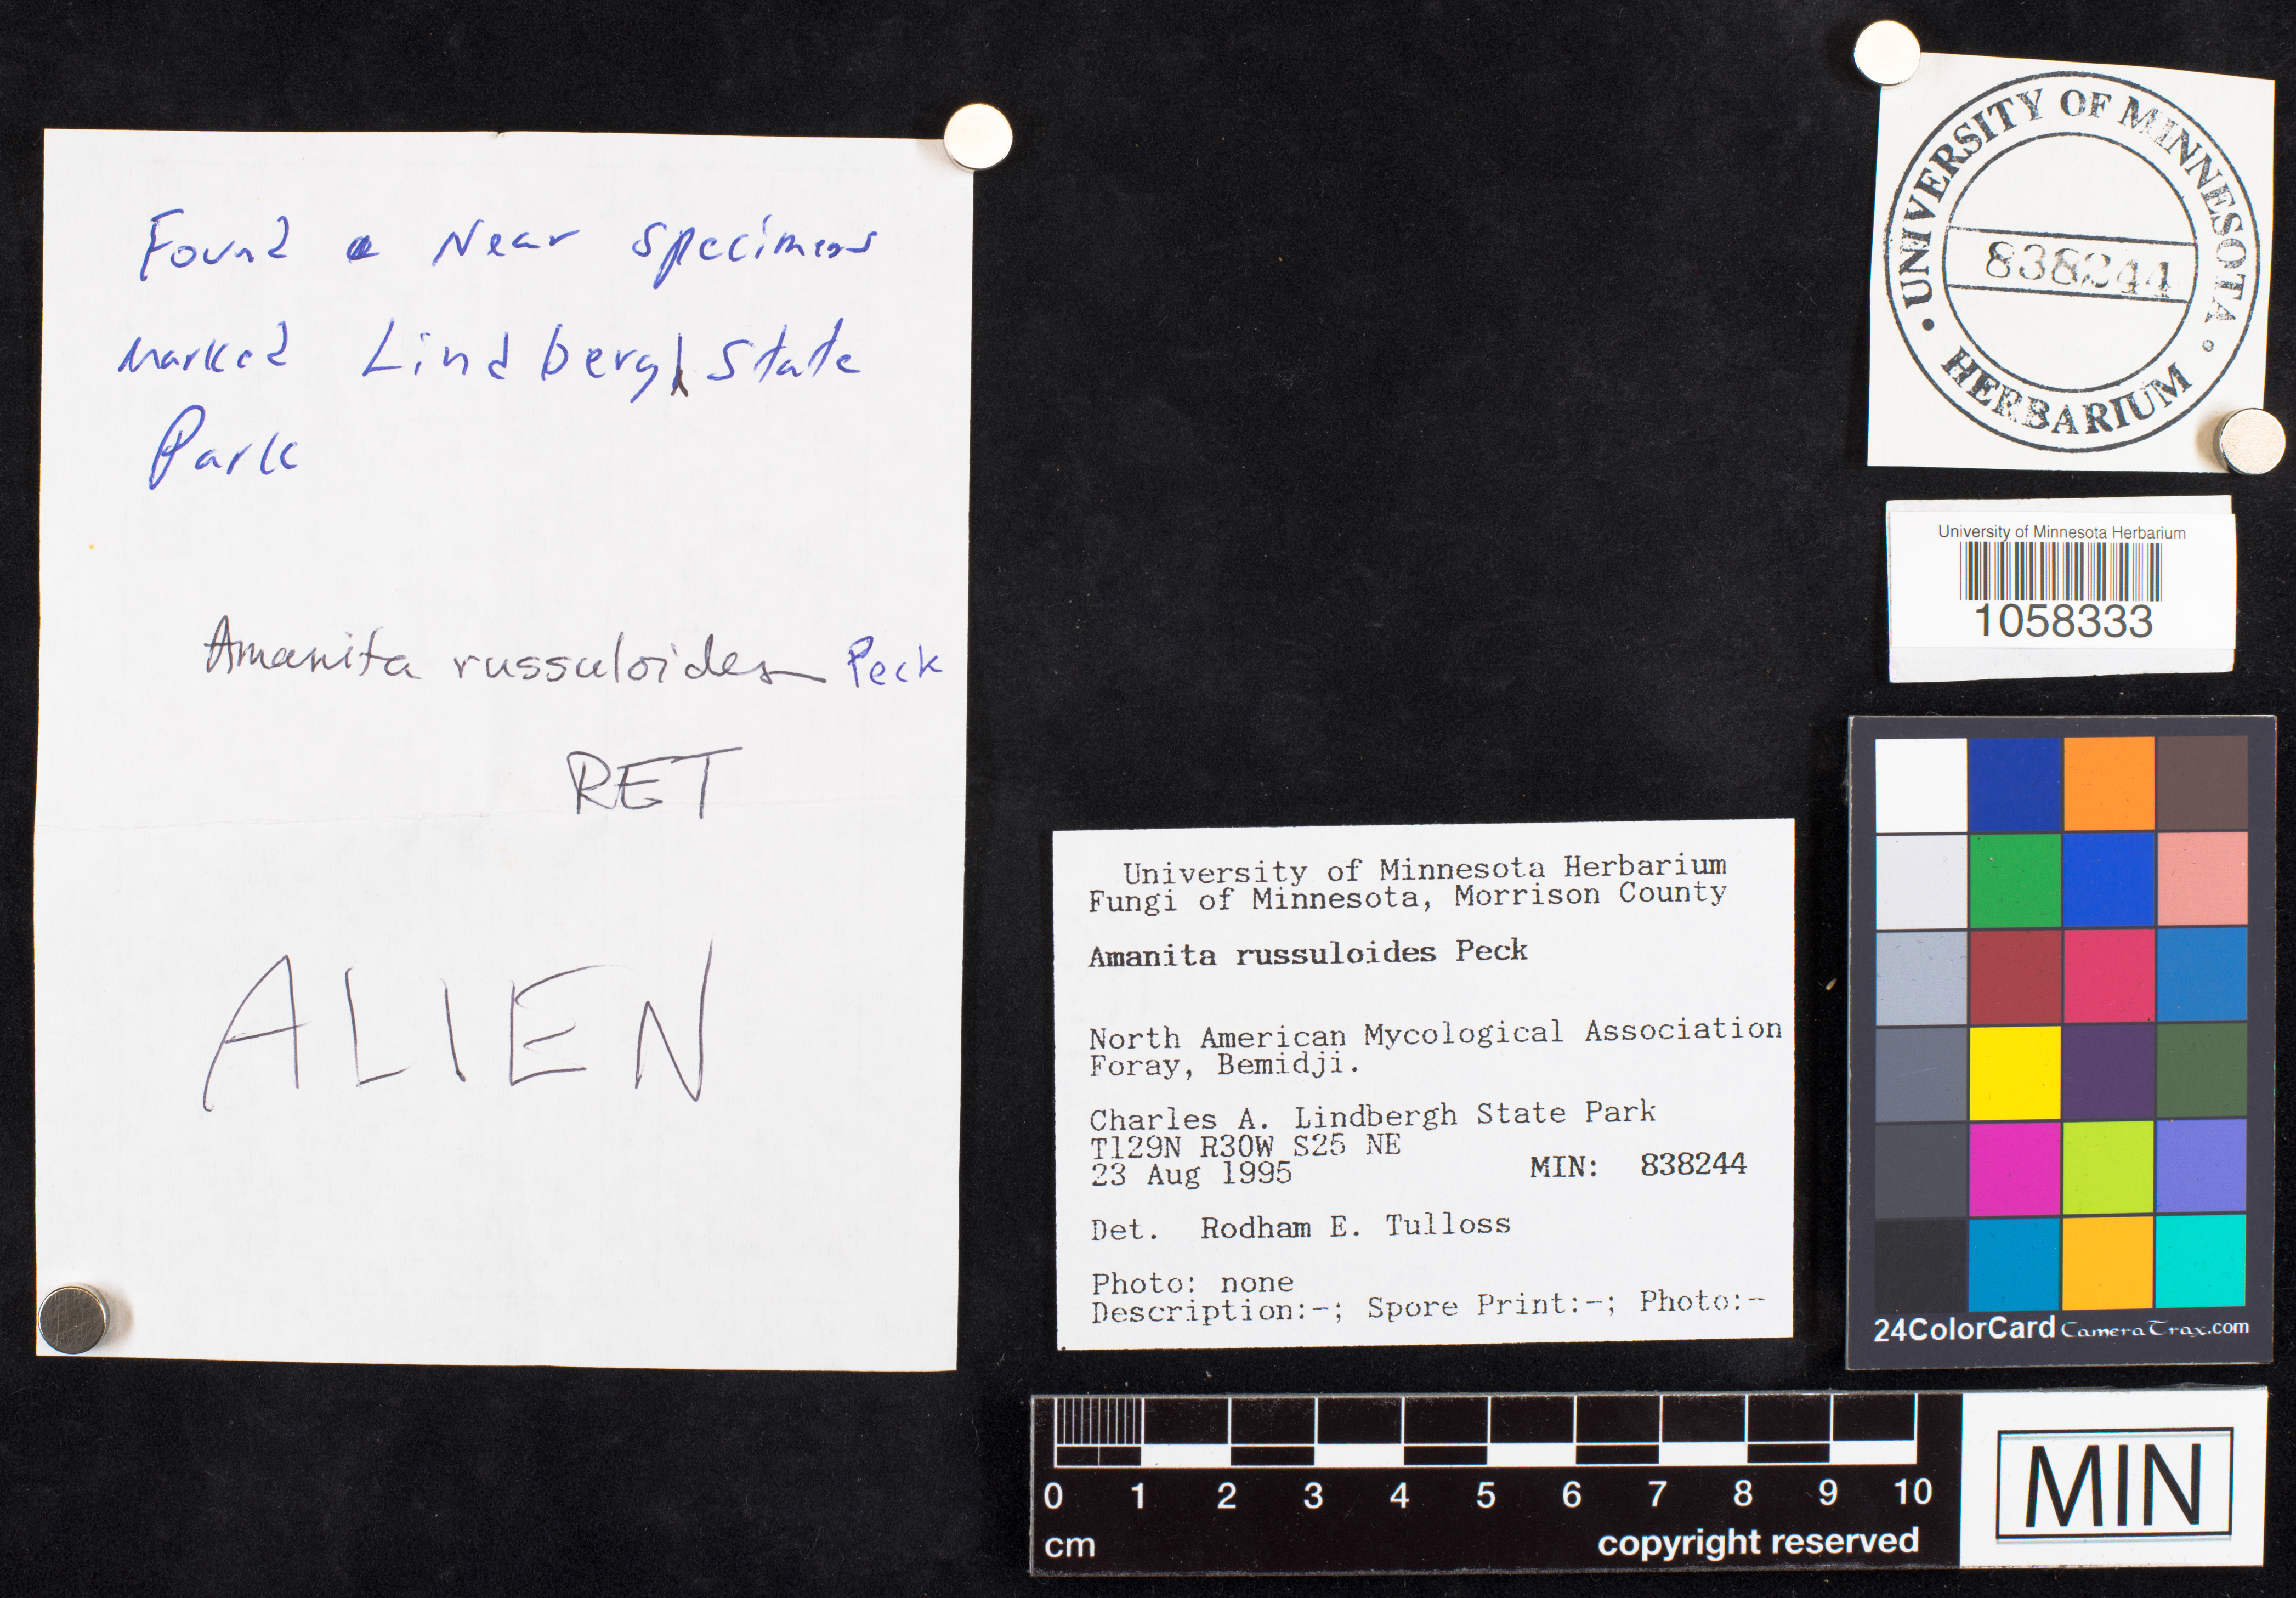 Found Near specimens
Marked Lindbergh State
Park
Amanita russuloides Peck
RET
ALIEN
UNIVERSITY OF MINNESOTA
838244
HERBARIUM
University of Minnesota Herbarium
1058333
University of Minnesota Herbarium
Fungi of Minnesota, Morrison County
Amanita russuloides Peck
North American Mycological Association
Foray, Bemidji.
Charles A. Lindbergh State Park
T129N R30W S25 NE
23 Aug 1995 MIN: 838244
Det. Rodham E. Tulloss
Photo: none
Description:-; Spore Print:-; Photo:-
24ColorCard CameraTrax.com
0 1 2 3 4 5 6 7 8 9 10
cm copyright reserved
MIN